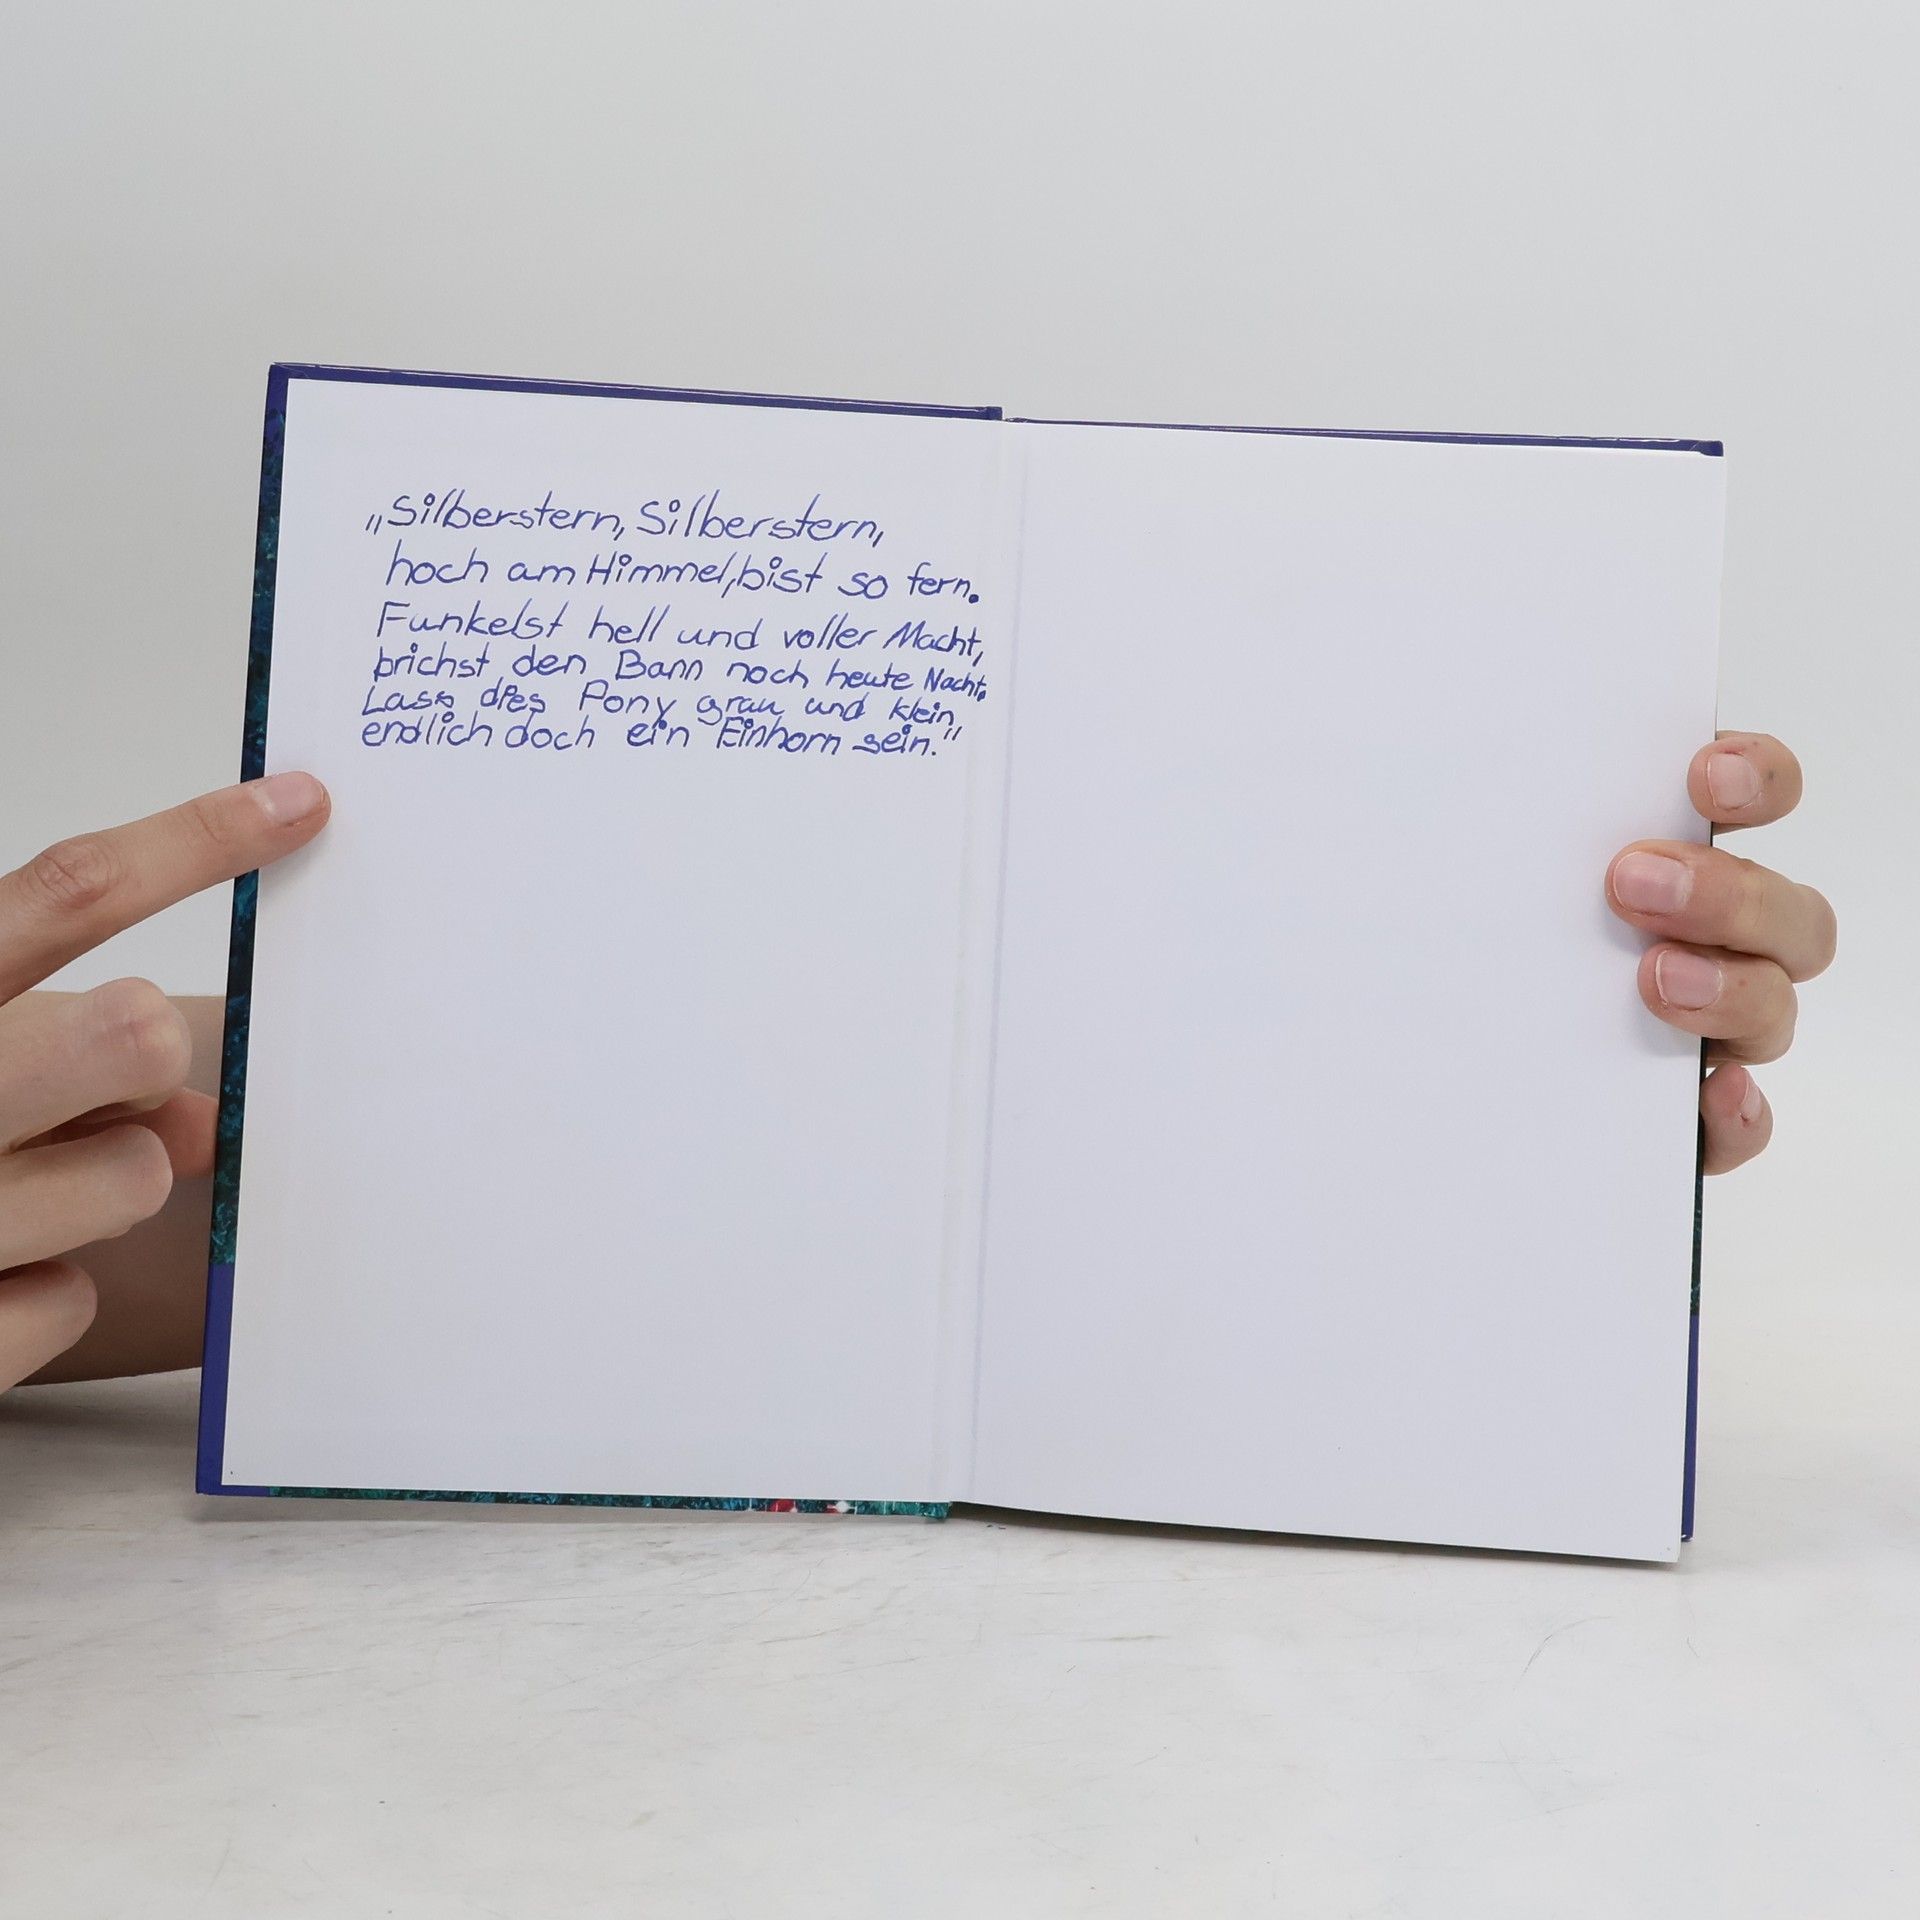 „Silberstern, Silberstern,
hoch am Himmel, bist so fern.
Funkelst hell und voller Macht,
brichst den Bann noch heute Nacht.
Lass dies Pony grau und klein,
endlich doch ein Einhorn sein."